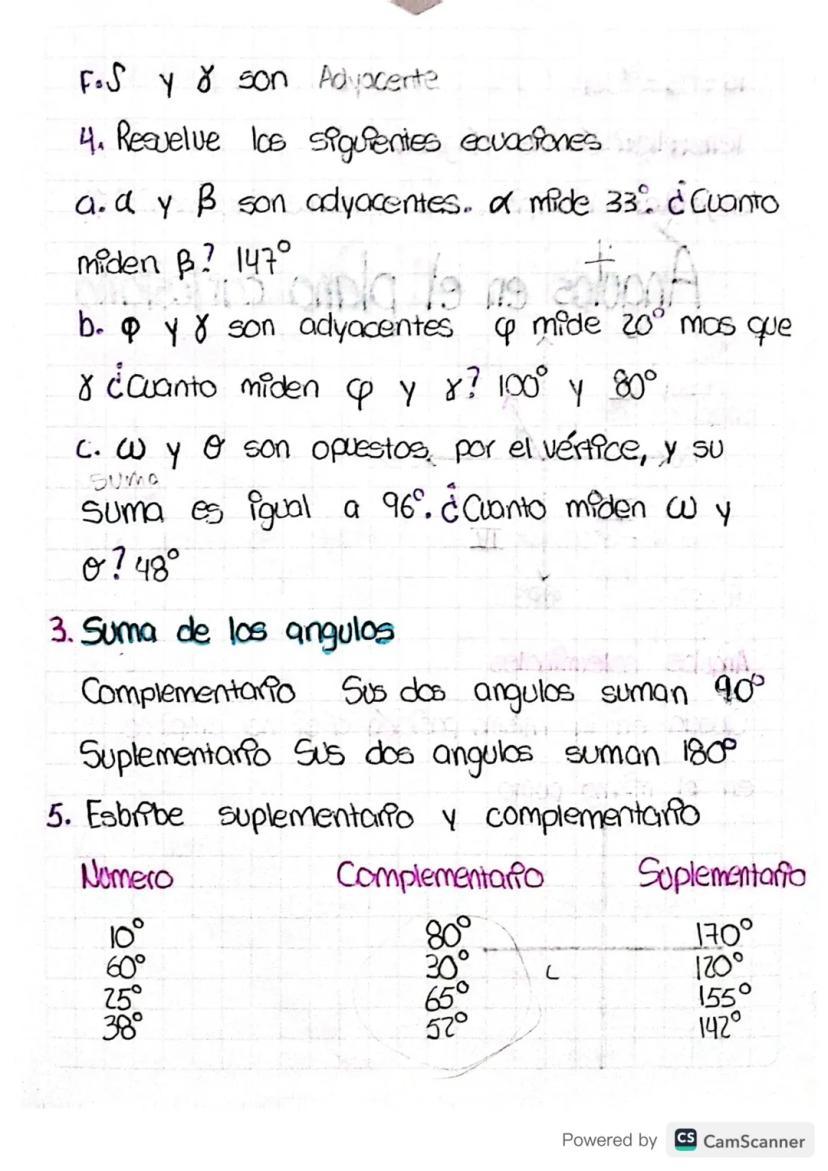 F. δ y γ son Adyacente
4. Resuelve los siguientes ecuaciones
a. α y β son adyacentes. α mide 33°. ¿Cuanto
miden β? 147°
b. φ y γ son adyacentes φ mide 20° mas que
γ ¿Cuanto miden φ y γ? 100° y 80°
c. ω y θ son opuestos, por el vértice, y su
suma
suma es igual a 96°. ¿Cuanto miden ω y
θ? 48°
3. Suma de los angulos
Complementario Sus dos angulos suman 90°
Suplementario Sus dos angulos suman 180°
5. Esbribe suplementario y complementario
Numero Complementario Suplementario
10° 80° 170°
60° 30° 120°
25° 65° 155°
38° 52° 142°
Powered by CS CamScanner